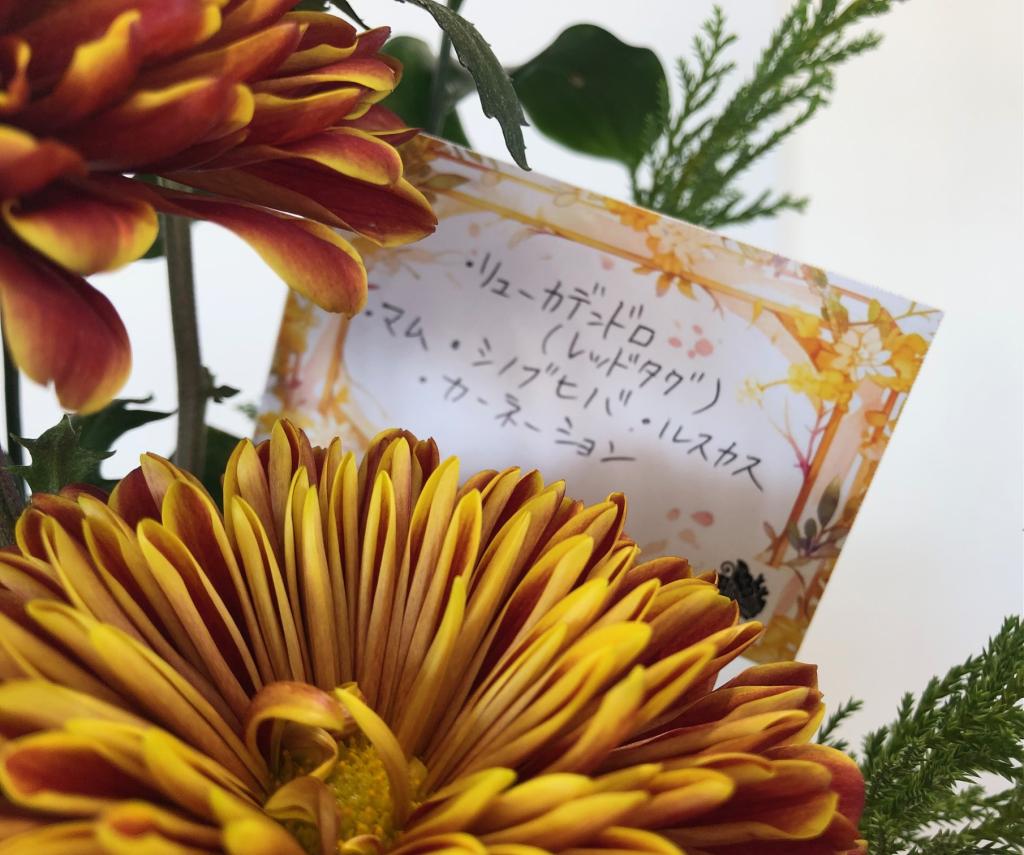 ・リューカデンドロ
(レッドタグ)
・マム・シノブヒバ・ルスカス
・カーネーション